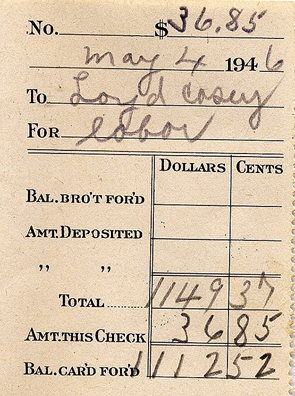 No. $36.85
May 4 1946
To Loyd Casey
For labor
Dollars Cents
Bal. Bro't For'd
Amt. Deposited
" "
Total ........ 1149 37
Amt. This Check 36 85
Bal. Car'd For'd 1112 52